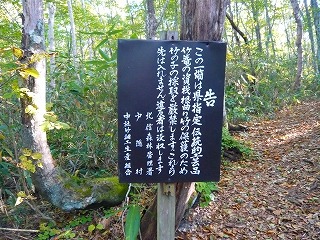 告
この一帯は県指定伝統的工芸品
竹篭の資源根曲り竹の保護のため
竹の子の採取を厳禁します これより
先は入れません 違反者は没収します
北信森林管理署
山ノ内町
中社竹細工生産組合